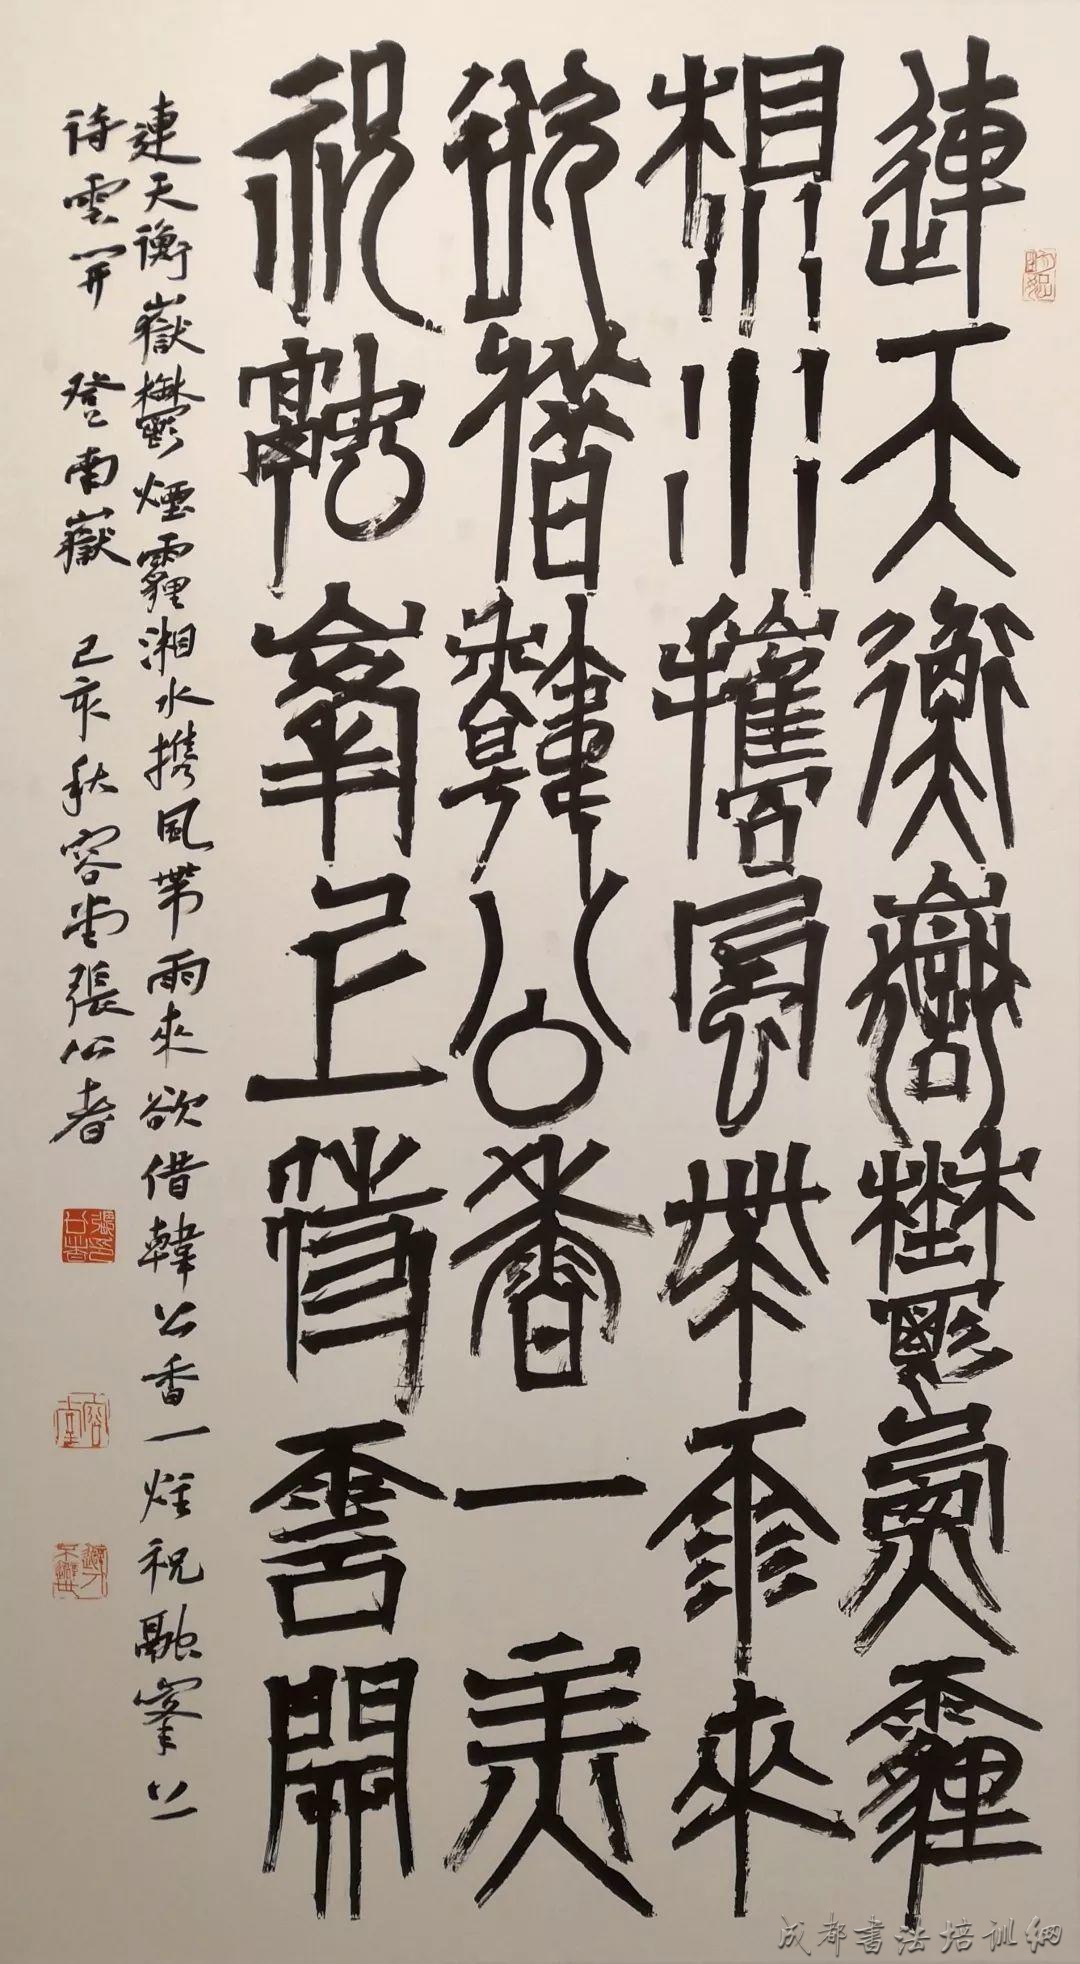 連天衡嶽鬱煙霾
湘水攜風帶雨來
欲借韓公香一炷
祝融峯上待雲開
連天衡嶽鬱煙霾湘水携風帶雨來欲借韓公香一炷祝融峯上
待雲開 登南嶽 己亥秋容堂張公者
成都書法培训網